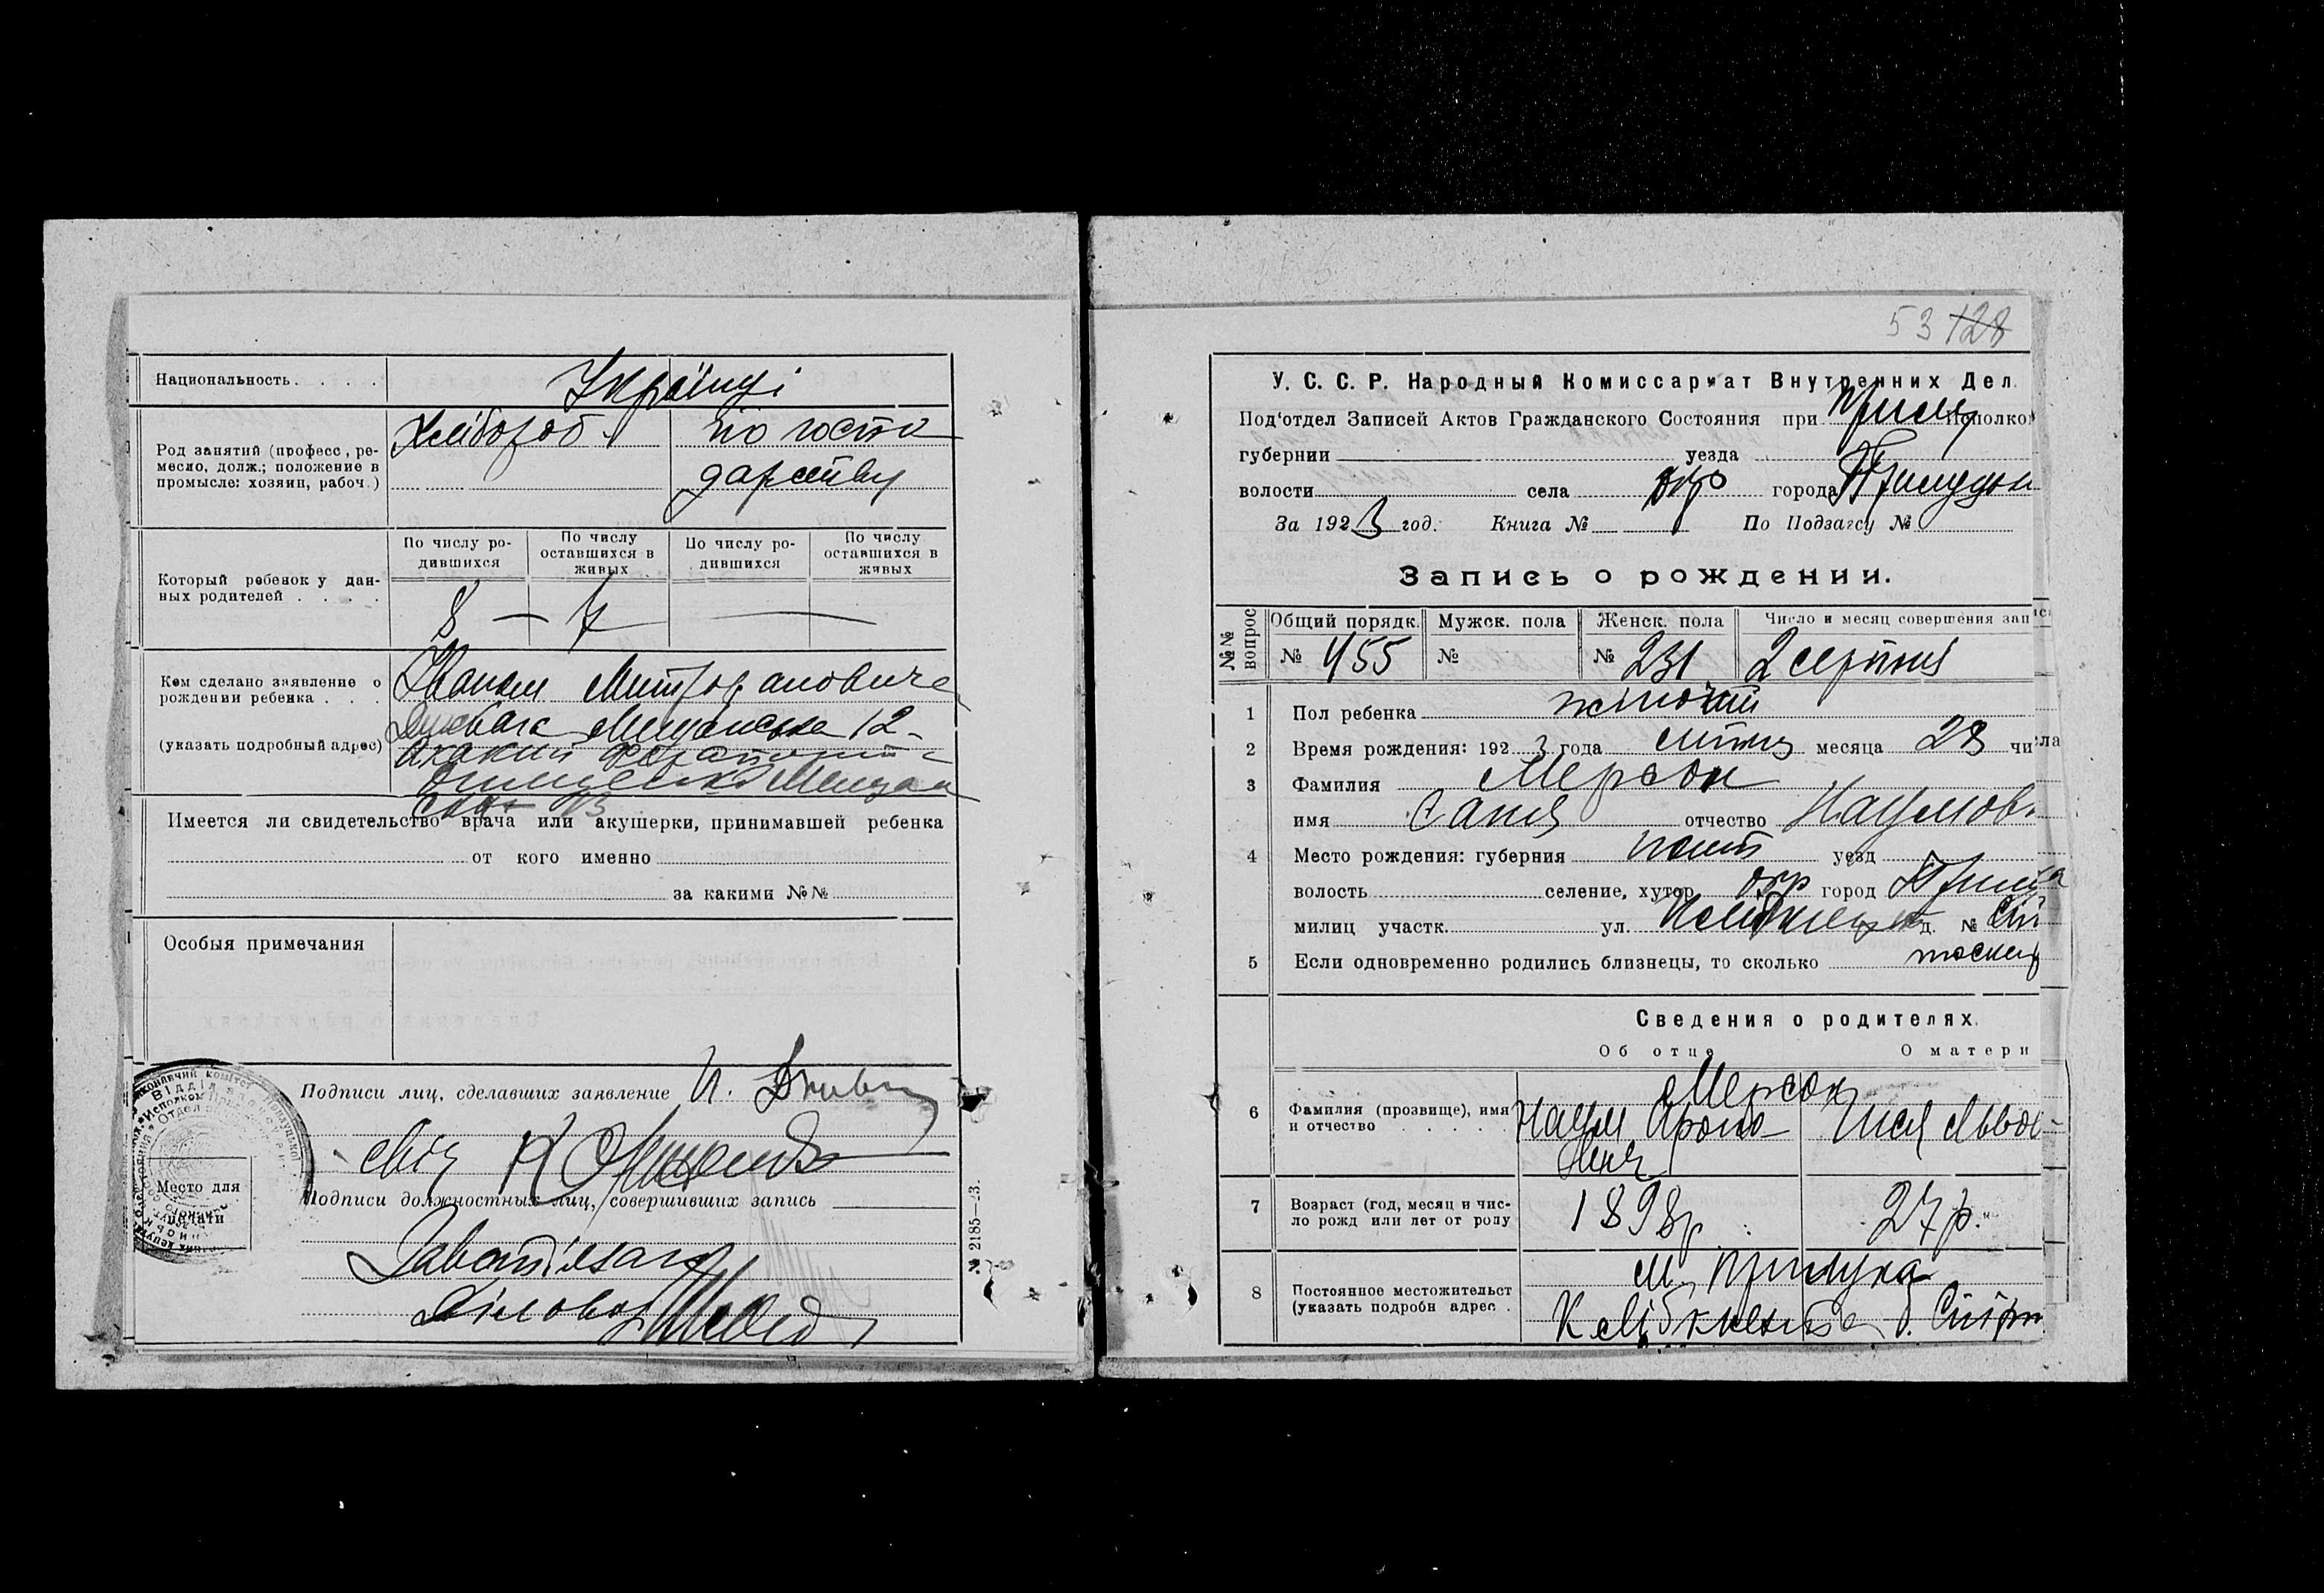 Национальность. . . . . Українці
Род занятий (професс, ре-
месло, долж.; положение в
промысле: хозяин, рабоч.)
Хлібороб по госпо
дарству
Который ребенок у дан-
ных родителей . . . .
По числу ро-
дившихся
По числу
оставшихся в
живых
По числу ро-
дившихся
По числу
оставшихся в
живых
8 — 7 —
Кем сделано заявление о
рождении ребенка . . .
(указать подробный адрес)
Иваном Митрофановиче
Міщанська 12
Имеется ли свидетельство врача или акушерки, принимавшей ребенка
от кого именно
за какими №№
Особыя примечания
Подписи лиц, сделавших заявление И.
Подписи должностных лиц, совершивших запись
Место для
печати
Діловод
№ 2185—23.
53 128
У. С. С. Р. Народный Комиссариат Внутренних Дел
Под'отдел Записей Актов Гражданского Состояния при Прилуц Исполком
губернии уезда
волости села окр города Прилуки
За 1923 год. Книга № По Подзагсу №
Запись о рождении.
№№
вопрос
Общий порядк. Мужск. пола Женск. пола Число и месяц совершения запис
№ 455 № № 231 2 серпня
1 Пол ребенка жіночий
2 Время рождения: 1923 года липня месяца 28 числа
3 Фамилия Мерсон
имя Саня отчество Наумовн
4 Место рождения: губерния Полт уезд
волость селение, хутор окр город Прилука
милиц участк. ул. д. №
5 Если одновременно родились близнецы, то сколько
Сведения о родителях.
Об отце О матери
6 Фамилия (прозвище), имя
и отчество . . . . . .
Мерсон
Наум Ароно
вич
Львов-
7 Возраст (год, месяц и чис-
ло рожд или лет от роду
1898р. 27 р.
8 Постоянное местожительст
(указать подробн адрес .
м. Прилука